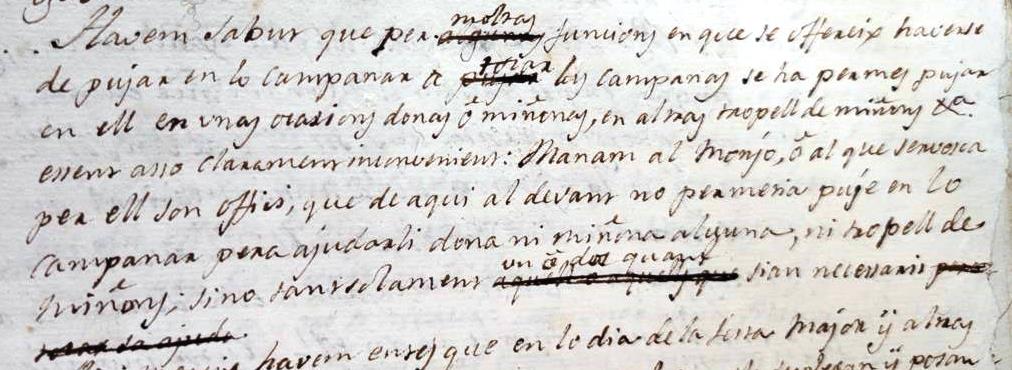 moltas
Havem sabut que per algunas funcions en que se offereix haverse
tocar
de pujar en lo campanar a pujar las campanas se ha permes pujar
en ell en unas ocasions donas ô miñonas, en altras tropell de miñons &a.
essent asso clarament inconvenient: Manam al Monjo, ô al que servesca
per ell son offici, que de aqui al devant no permetia puje en lo
campanar pera ajudarli dona ni miñona alguna, ni tropell de
un ô dos quant
miñons; sino tant solament aquell o aquells que sian necessaris pera
tocar sa ajuda.
havem entes que en lo dia de la festa Major ÿ altras
ÿ posan